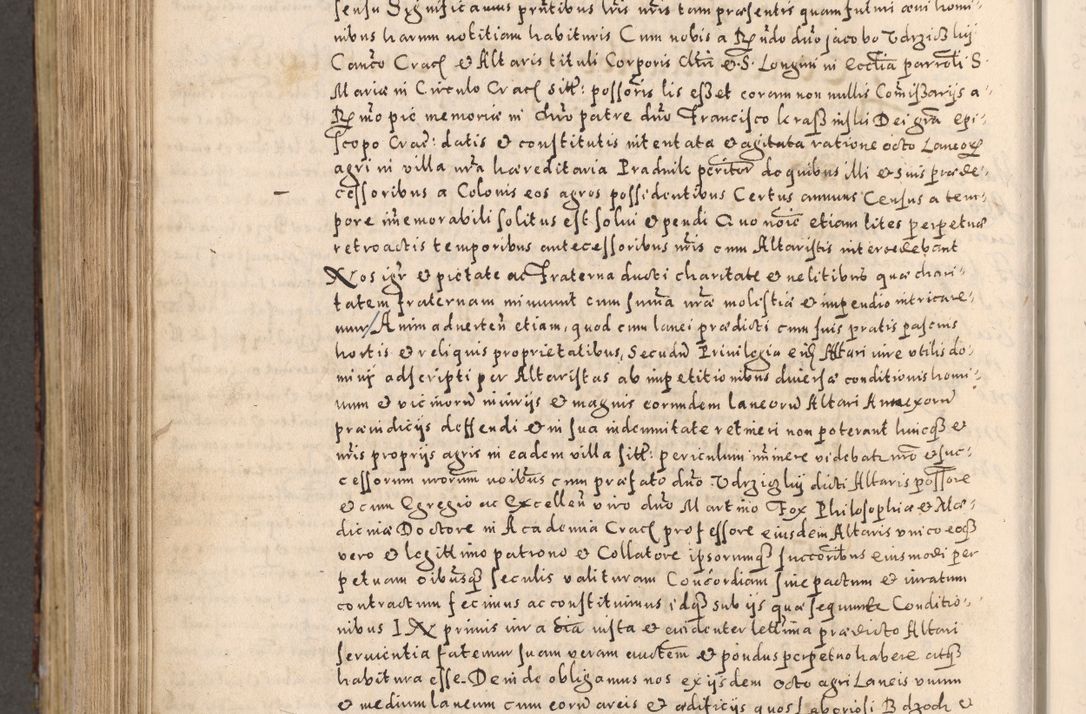 sensu Significamus pñtibus lris nris tam præsentis quam futuri ævi homi-
nibus harum notitiam habituris Cum nobis a Rndo dno Jacobo Udrziczkij
Canco Crac et Altaris tituli Corporis Chri et S. Longini in Ecctia parroli S.
Mariæ in Circulo Crac sitt: possoris lis esset coram non nullis Comissarijs a
Rmo piæ memoriæ in Chro patre dno Francisco Krassinski Dei gra Epi-
scopo Crac: datis et constitutis intentata et agitata ratione octo Laneorum
agri in villa nra hæreditaria Pradnik pariter de quibus illi et suis præde-
cessoribus a Colonis eos agros possidentibus Certus annuus Census a tem-
pore immemorabili solitus est solvi et pendi Quo noie etiam lites perpetuæ
retroactis temporibus antecessoribus nris cum Altaristis intercedebant
Nos igr et pietate ac Fraterna ducti charitate et ne litibus quæ chari-
tatem fraternam minuunt cum suma nra molestia et impendio intricare-
mur, Animadverten etiam, quod cum lanei prædicti cum suis pratis pascuis
hortis et reliquis proprietatibus, Secundu Privilegia eius Altari iure utilis do-
minij adscripti per Altaristas ab impetitionibus diversæ conditionis homi-
num et vicinoru iniurijs et magnis eorundem laneoru Altari Annexoru
præiudicijs deffendi et in sua indemnitate retineri non poterant hincque et
nris proprijs agris in eadem villa sitt: periculum iminere videbatur et suc-
cessorum nrorum noibus cum præfato dno Udrziczkij dicti Altaris possore
et cum Egregio ac Excellen viro dno Martino Fox Philosophiæ et Me-
dicinæ Doctore in Academia Crac professore eiusdem Altaris unico eoque
vero et legittimo patrono et Collatore ipsorumque succoribus eiusmodi per
petuam oibusque seculis valituram Concordiam sine pactum et iuratum
contractum fecimus ac constituimus idque sub ijs quæ sequuntur Conditio-
nibus IN primis iura oia iusta et evidenter lettima prædicto Altari
servientia fatemur suam veram auctem et pondus perpetuo habere atque
habitura esse. Deinde obligamus nos ex ijsdem octo agri Laneis unum
et medium laneum cum eoru areis et ædificijs quos Laboriosi Bdzoch et